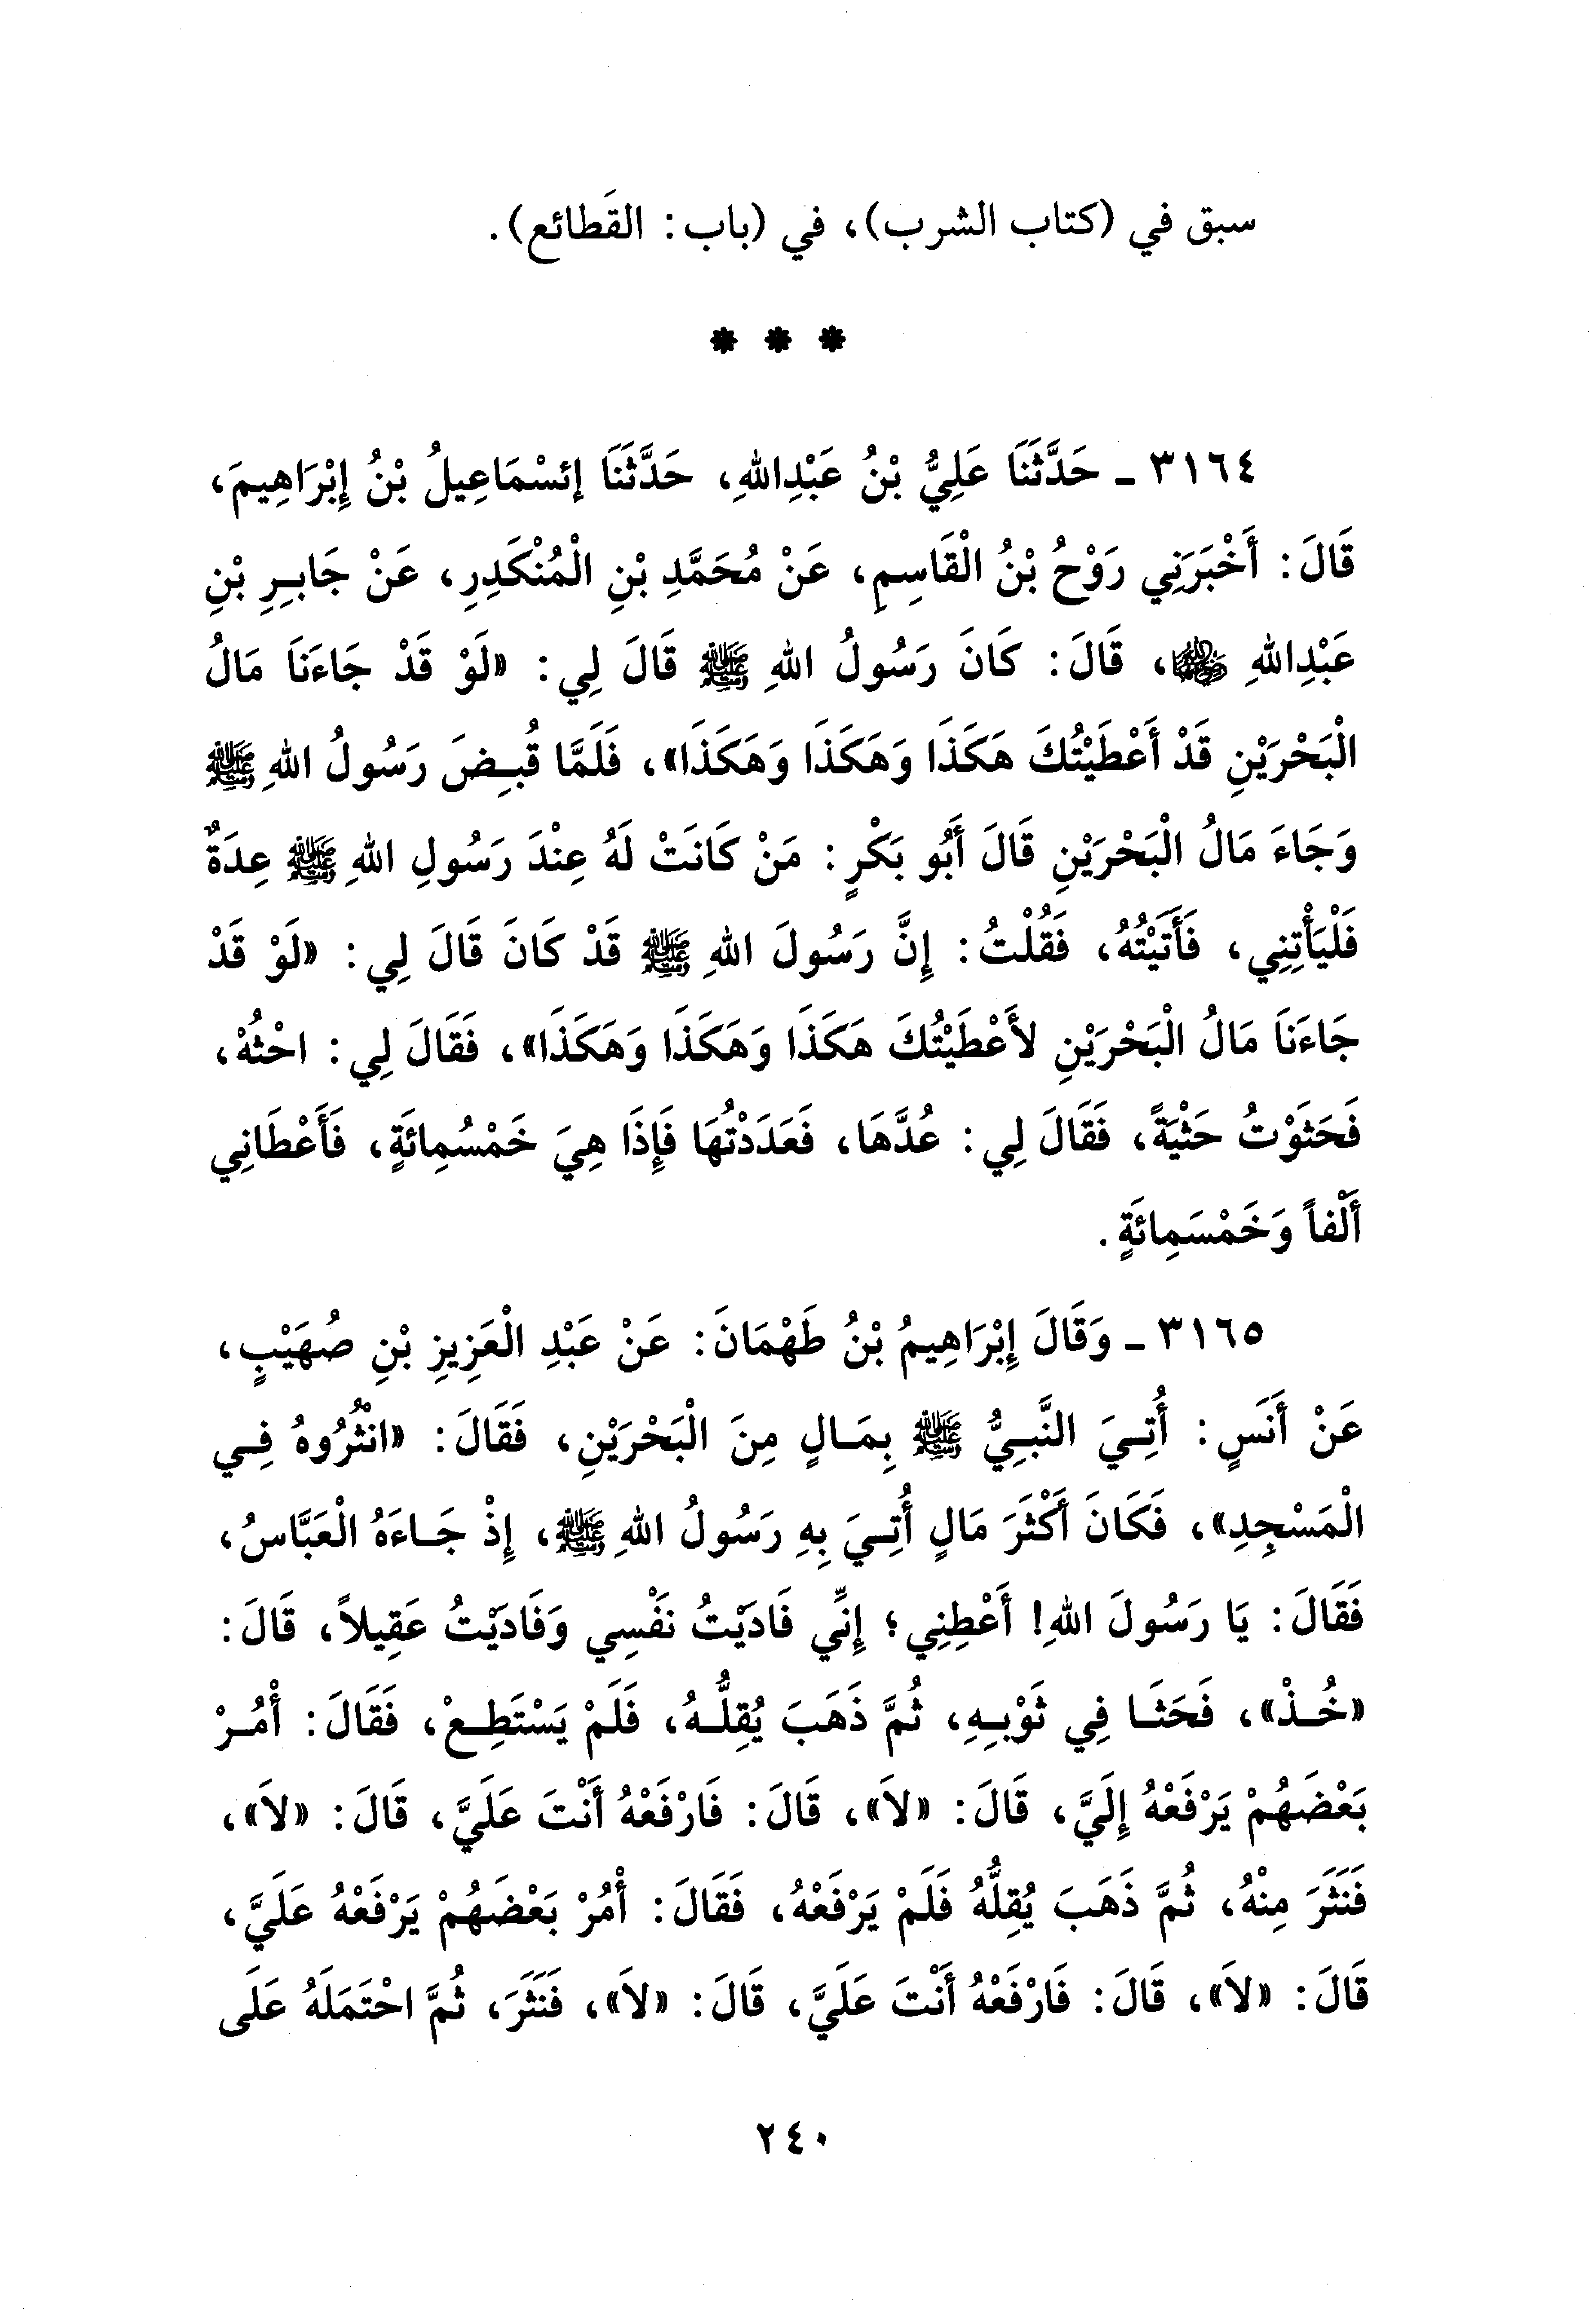 سبق في (كتاب الشرب)، في (باب: القَطائع).
* * *
٣١٦٤ ـ حَدَّثَنَا عَلِيُّ بْنُ عَبْدِاللهِ، حَدَّثَنَا إئسْمَاعِيلُ بْنُ إِبْرَاهِيمَ،
قَالَ: أَخْبَرَنِي رَوْحُ بْنُ الْقَاسِمِ، عَنْ مُحَمَّدِ بْنِ الْمُنْكَدِرِ، عَنْ جَابِرِ بْنِ
عَبْدِاللهِ ﵁، قَالَ: كَانَ رَسُولُ اللهِ ﷺ قَالَ لِي: «لَوْ قَدْ جَاءَنَا مَالُ
الْبَحْرَيْنِ قَدْ أَعْطَيْتُكَ هَكَذَا وَهَكَذَا وَهَكَذَا»، فَلَمَّا قُبِضَ رَسُولُ اللهِ ﷺ
وَجَاءَ مَالُ الْبَحْرَيْنِ قَالَ أَبُو بَكْرٍ: مَنْ كَانَتْ لَهُ عِنْدَ رَسُولِ اللهِ ﷺ عِدَةٌ
فَلْيَأْتِنِي، فَأَتَيْتُهُ، فَقُلْتُ: إِنَّ رَسُولَ اللهِ ﷺ قَدْ كَانَ قَالَ لِي: «لَوْ قَدْ
جَاءَنَا مَالُ الْبَحْرَيْنِ لأَعْطَيْتُكَ هَكَذَا وَهَكَذَا وَهَكَذَا»، فَقَالَ لِي: احْثُهْ،
فَحَثَوْتُ حَثْيَةً، فَقَالَ لِي: عُدَّهَا، فَعَدَدْتُهَا فَإِذَا هِيَ خَمْسُمِائَةٍ، فَأَعْطَانِي
أَلْفاً وَخَمْسَمِائَةٍ.
٣١٦٥ ـ وَقَالَ إِبْرَاهِيمُ بْنُ طَهْمَانَ: عَنْ عَبْدِ الْعَزِيزِ بْنِ صُهَيْبٍ،
عَنْ أَنَسٍ: أُتِيَ النَّبِيُّ ﷺ بِمَالٍ مِنَ الْبَحْرَيْنِ، فَقَالَ: «انْثُرُوهُ فِي
الْمَسْجِدِ»، فَكَانَ أَكْثَرَ مَالٍ أُتِيَ بِهِ رَسُولُ اللهِ ﷺ، إِذْ جَاءَهُ الْعَبَّاسُ،
فَقَالَ: يَا رَسُولَ اللهِ! أَعْطِنِي؛ إِنِّي فَادَيْتُ نَفْسِي وَفَادَيْتُ عَقِيلاً، قَالَ:
«خُذْ»، فَحَثَا فِي ثَوْبِهِ، ثُمَّ ذَهَبَ يُقِلُّهُ، فَلَمْ يَسْتَطِعْ، فَقَالَ: أْمُرْ
بَعْضَهُمْ يَرْفَعْهُ إِلَيَّ، قَالَ: «لاَ»، قَالَ: فَارْفَعْهُ أَنْتَ عَلَيَّ، قَالَ: «لاَ»،
فَنَثَرَ مِنْهُ، ثُمَّ ذَهَبَ يُقِلُّهُ فَلَمْ يَرْفَعْهُ، فَقَالَ: أْمُرْ بَعْضَهُمْ يَرْفَعْهُ عَلَيَّ،
قَالَ: «لاَ»، قَالَ: فَارْفَعْهُ أَنْتَ عَلَيَّ، قَالَ: «لاَ»، فَنَثَرَ، ثُمَّ احْتَمَلَهُ عَلَى
٢٤٠